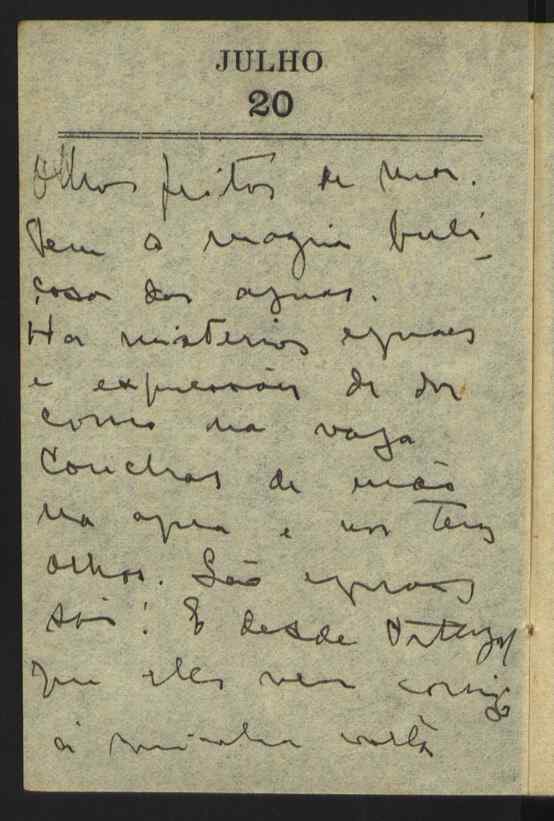 JULHO
20
Olhos feitos de mar.
Tem a magia buli-
çosa das aguas.
Ha misterios eguaes
e expressões de dor
como na vaga
Conchas de
na agua e nos teus
olhos. São eguaes
sói! E desde
que eles vem comigo
á minha